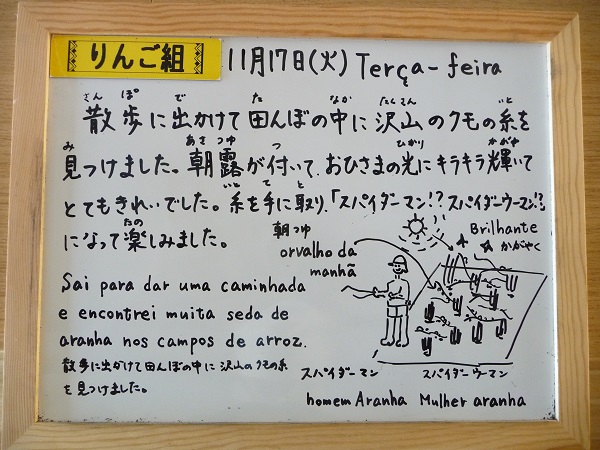 りんご組
11月17日(火) Terça-feira
さんぽ で た なか たくさん いと
散歩に出かけて田んぼの中に沢山のクモの糸を
み あさつゆ つ ひかり かがや
見つけました。朝露が付いて、おひさまの光にキラキラ輝いて
いと て と
とてもきれいでした。糸を手に取り、「スパイダーマン!?スパイダーウーマン!?」
たの
になって楽しみました。
朝つゆ
orvalho da
manhã
Brilhante
かがやく
Sai para dar uma caminhada
e encontrei muita seda de
aranha nos campos de arroz.
散歩に出かけて田んぼの中に沢山のクモの糸
を見つけました。
スパイダーマン スパイダーウーマン
homem Aranha Mulher aranha